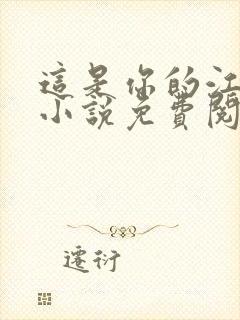 這是你的江
小說免費閱
遷衍